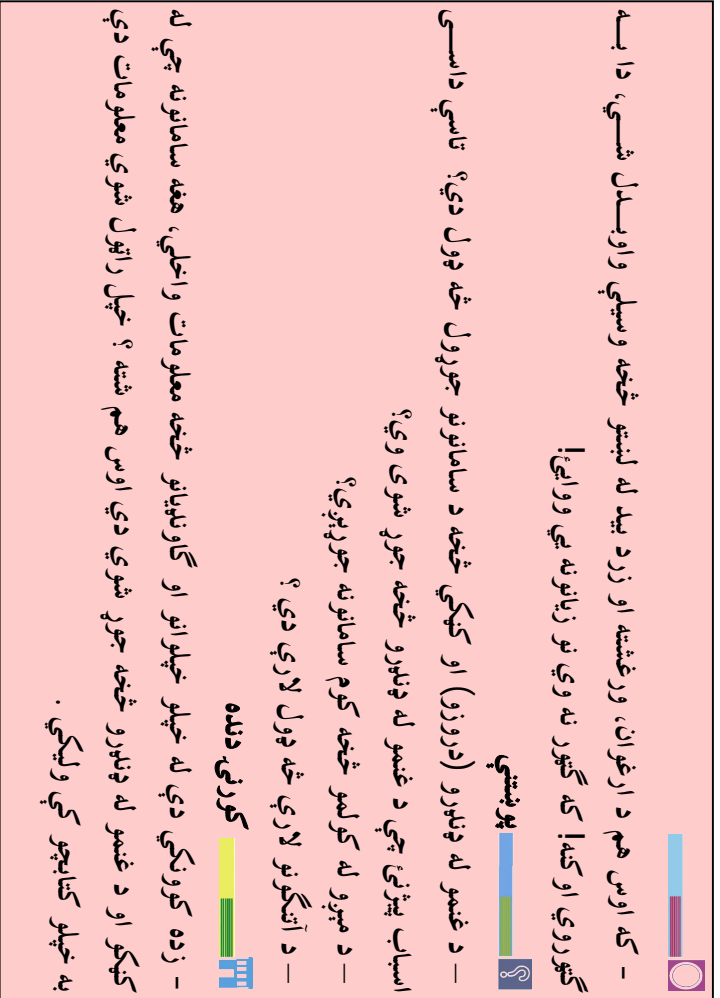 - که اوس هم د ارغوان، ورغشته او زرد بید له لښتو څخه وسیلې واوبــدل شــي، دا بــه
ګټوروي او کنه! که ګټور نه وي نو زیانونه یې ووایئ!
پوښتنې
— د غنمو له ډنډرو (دروزو) او کڼکې څخه د سامانونو جوړول څه ډول دي؟ تاسې داســی
اسباب پیژنئ چې د غنمو له ډنډرو څخه جوړ شوی وي؟
— د میږو له کولمو څخه کوم سامانونه جوړیږي؟
— د آتنګونو لارې څه ډول لارې دي ؟
کورنۍ دنده
- زده کوونکي دې له خپلو خپلوانو او ګاونډیانو څخه معلومات واخلي، هغه سامانونه چې له
کڼکو او د غنمو له ډنډرو څخه جوړ شوي دي اوس هم شته ؟ خپل راټول شوي معلومات دې
په خپلو کتابچو کې ولیکي .